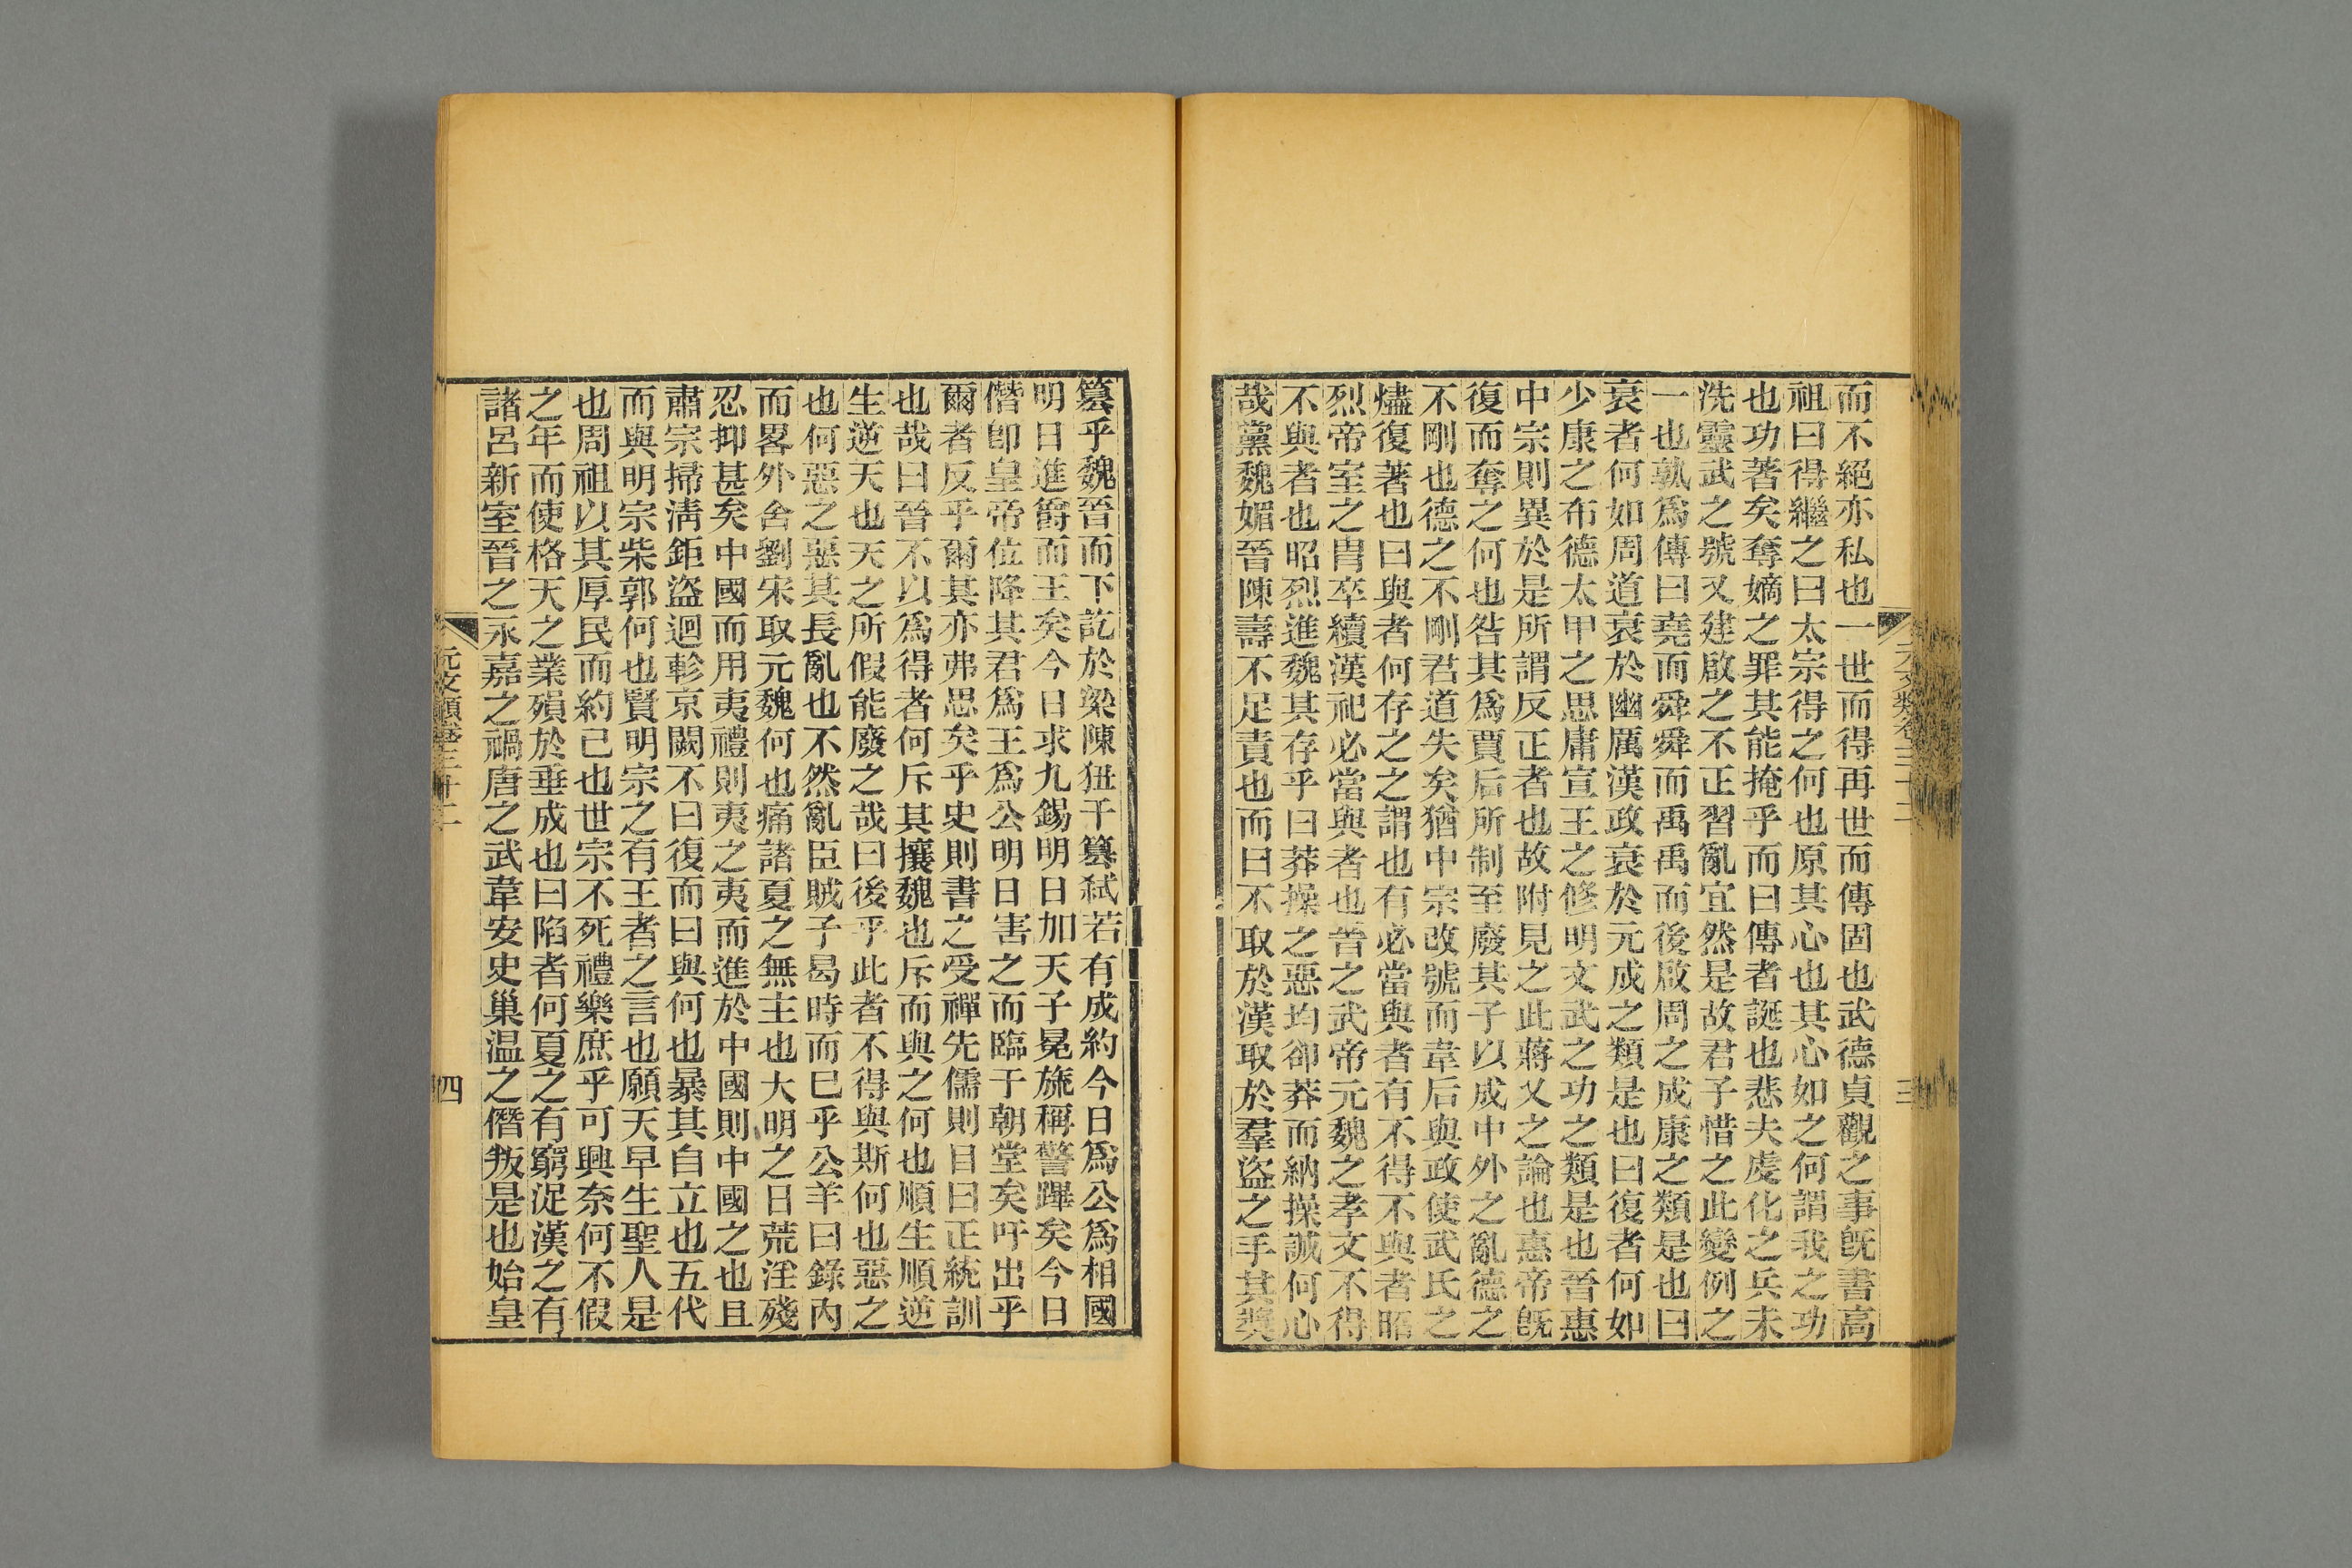 而不絕亦私也一世而得再世而傳固也武德貞觀之事旣書高
祖曰得繼之曰太宗得之何也原其心也其心如之何謂我之功
也功著矣奪嫡之罪其能掩乎而曰傳者誕也悲夫虔化之兵未
洗靈武之號又建啟之不正習亂宜然是故君子惜之此變例之
一也孰爲傳曰堯而舜舜而禹禹而後啟周之成康之類是也曰
衰者何如周道衰於幽厲漢政衰於元成之類是也曰復者何如
少康之布德太甲之思庸宣王之修明文武之功之類是也晉惠
中宗則異於是所謂反正者也故附見之此蔣乂之論也惠帝旣
復而奪之何也咎其爲賈后所制至廢其子以成中外之亂德之
不剛也德之不剛君道失矣猶中宗改號而韋后與政使武氏之
燼復著也曰與者何存之之謂也有必當與者有不得不與者昭
烈帝室之胄卒續漢祀必當與者也晉之武帝元魏之孝文不得
不與者也昭烈進魏其存乎曰莽操之惡均卻莽而納操誠何心
哉黨魏媚晉陳壽不足責也而曰不取於漢取於羣盜之手其獎
元文類卷三十二
三
篡乎魏晉而下訖於梁陳狃于篡弒若有成約今日爲公爲相國
明日進爵而王矣今日求九錫明日加天子冕旒稱警蹕矣今日
僭卽皇帝位降其君爲王爲公明日害之而臨于朝堂矣吁出乎
爾者反乎爾其亦弗思矣乎史則書之受禪先儒則目曰正統訓
也哉曰晉不以爲得者何斥其攘魏也斥而與之何也順生順逆
生逆天也天之所假能廢之哉曰後乎此者不得與斯何也惡之
也何惡之惡其長亂也不然亂臣賊子曷時而已乎公羊曰錄內
而畧外舍劉宋取元魏何也痛諸夏之無主也大明之日荒淫殘
忍抑甚矣中國而用夷禮則夷之夷而進於中國則中國之也且
肅宗掃淸鉅盜迴軫京闕不曰復而曰與何也暴其自立也五代
而與明宗柴郭何也賢明宗之有王者之言也願天早生聖人是
也周祖以其厚民而約己也世宗不死禮樂庶乎可興奈何不假
之年而使格天之業殞於垂成也曰陷者何夏之有窮浞漢之有
諸呂新室晉之永嘉之禍唐之武韋安史巢温之僭叛是也始皇
元文類卷三十二
四